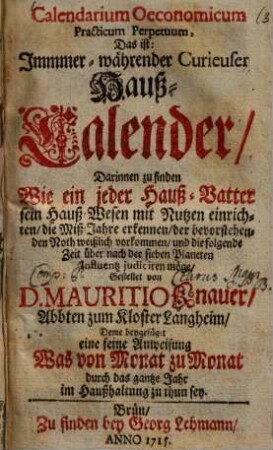 Calendarium Oeconomicum
Practicum Perpetuum,
Das ist:
Immmer-währender Curieuser
Hauß-
Calender/
Darinnen zu finden
Wie ein jeder Hauß-Vatter
sein Hauß-Wesen mit Nutzen einrich-
ten/ die Miß-Jahre erkennen/ der bevorstehen-
den Noth weißlich vorkommen/ und die folgende
Zeit über nach der sieben Planeten
Influentz judiciren möge/
Gestellet von
D. MAURITIO Knauer/
Abbten zum Kloster Langheim/
Deme beygefüget
eine feine Anweisung
Was von Monat zu Monat
durch das gantze Jahr
im Haußhaltung zu thun sey.
Brün/
Zu finden bey Georg Lehmann/
ANNO 1715.